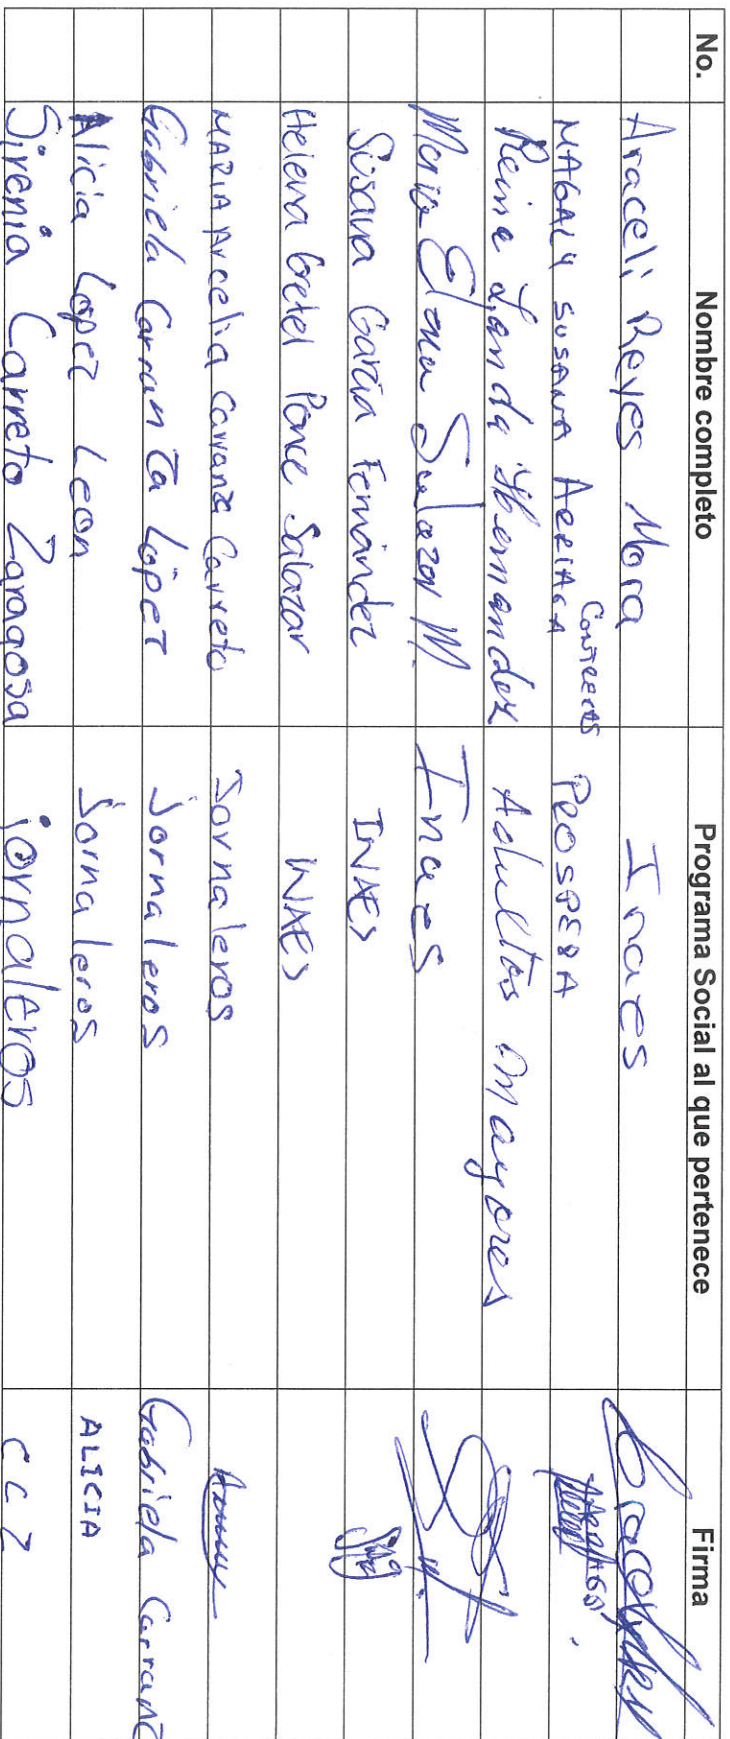 No. Nombre completo Programa Social al que pertenece Firma
Araceli Reyes Mora Inaes
MAGALY SUSANA ARRIAGA CONTRERAS PROSPERA
Reina Landa Hernandez Adultos mayores
Maria Elena Salazar M. Inaes
Susana García Fernández INAES
Helena Gretel Ponce Salazar INAES
MARIA Arcelia Carranza Carreto Jornaleros
Gabriela Carranza López Jornaleros Gabriela Carranz
Alicia Lopez Leon Jornaleros ALICIA
Sirenia Carreto Zaragosa jornaleros C C Z